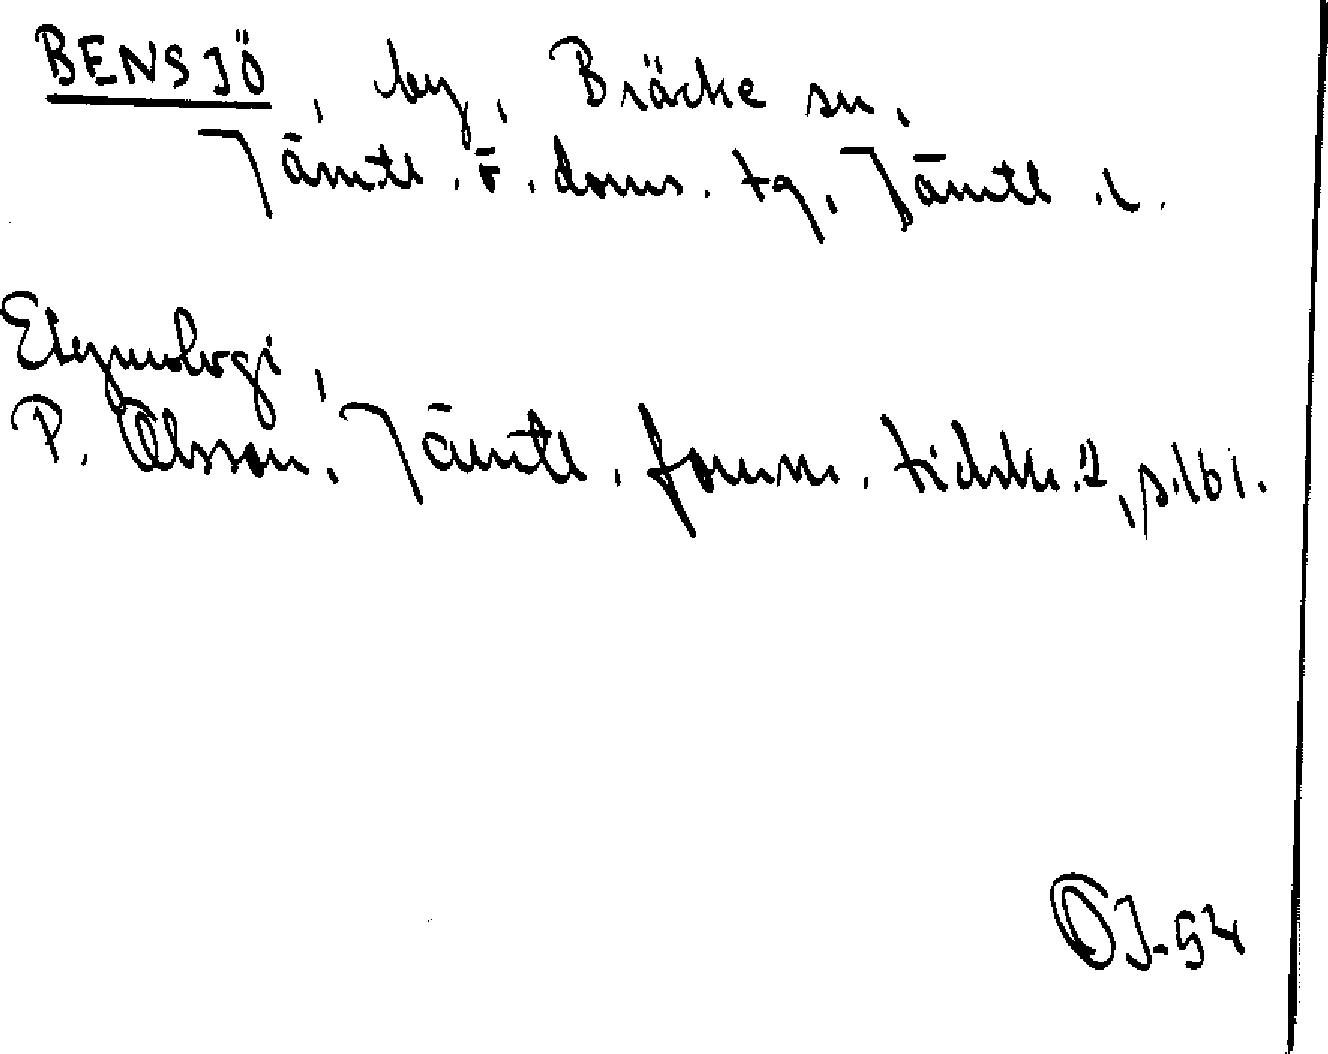 BENSJÖ, by, Bräcke sn,
Jämtl. ö. doms. tg, Jämtl. l.
Etymologi,
P. Olsson, Jämtl. fornm. tidskr. 2, s. 161.
OJ-54